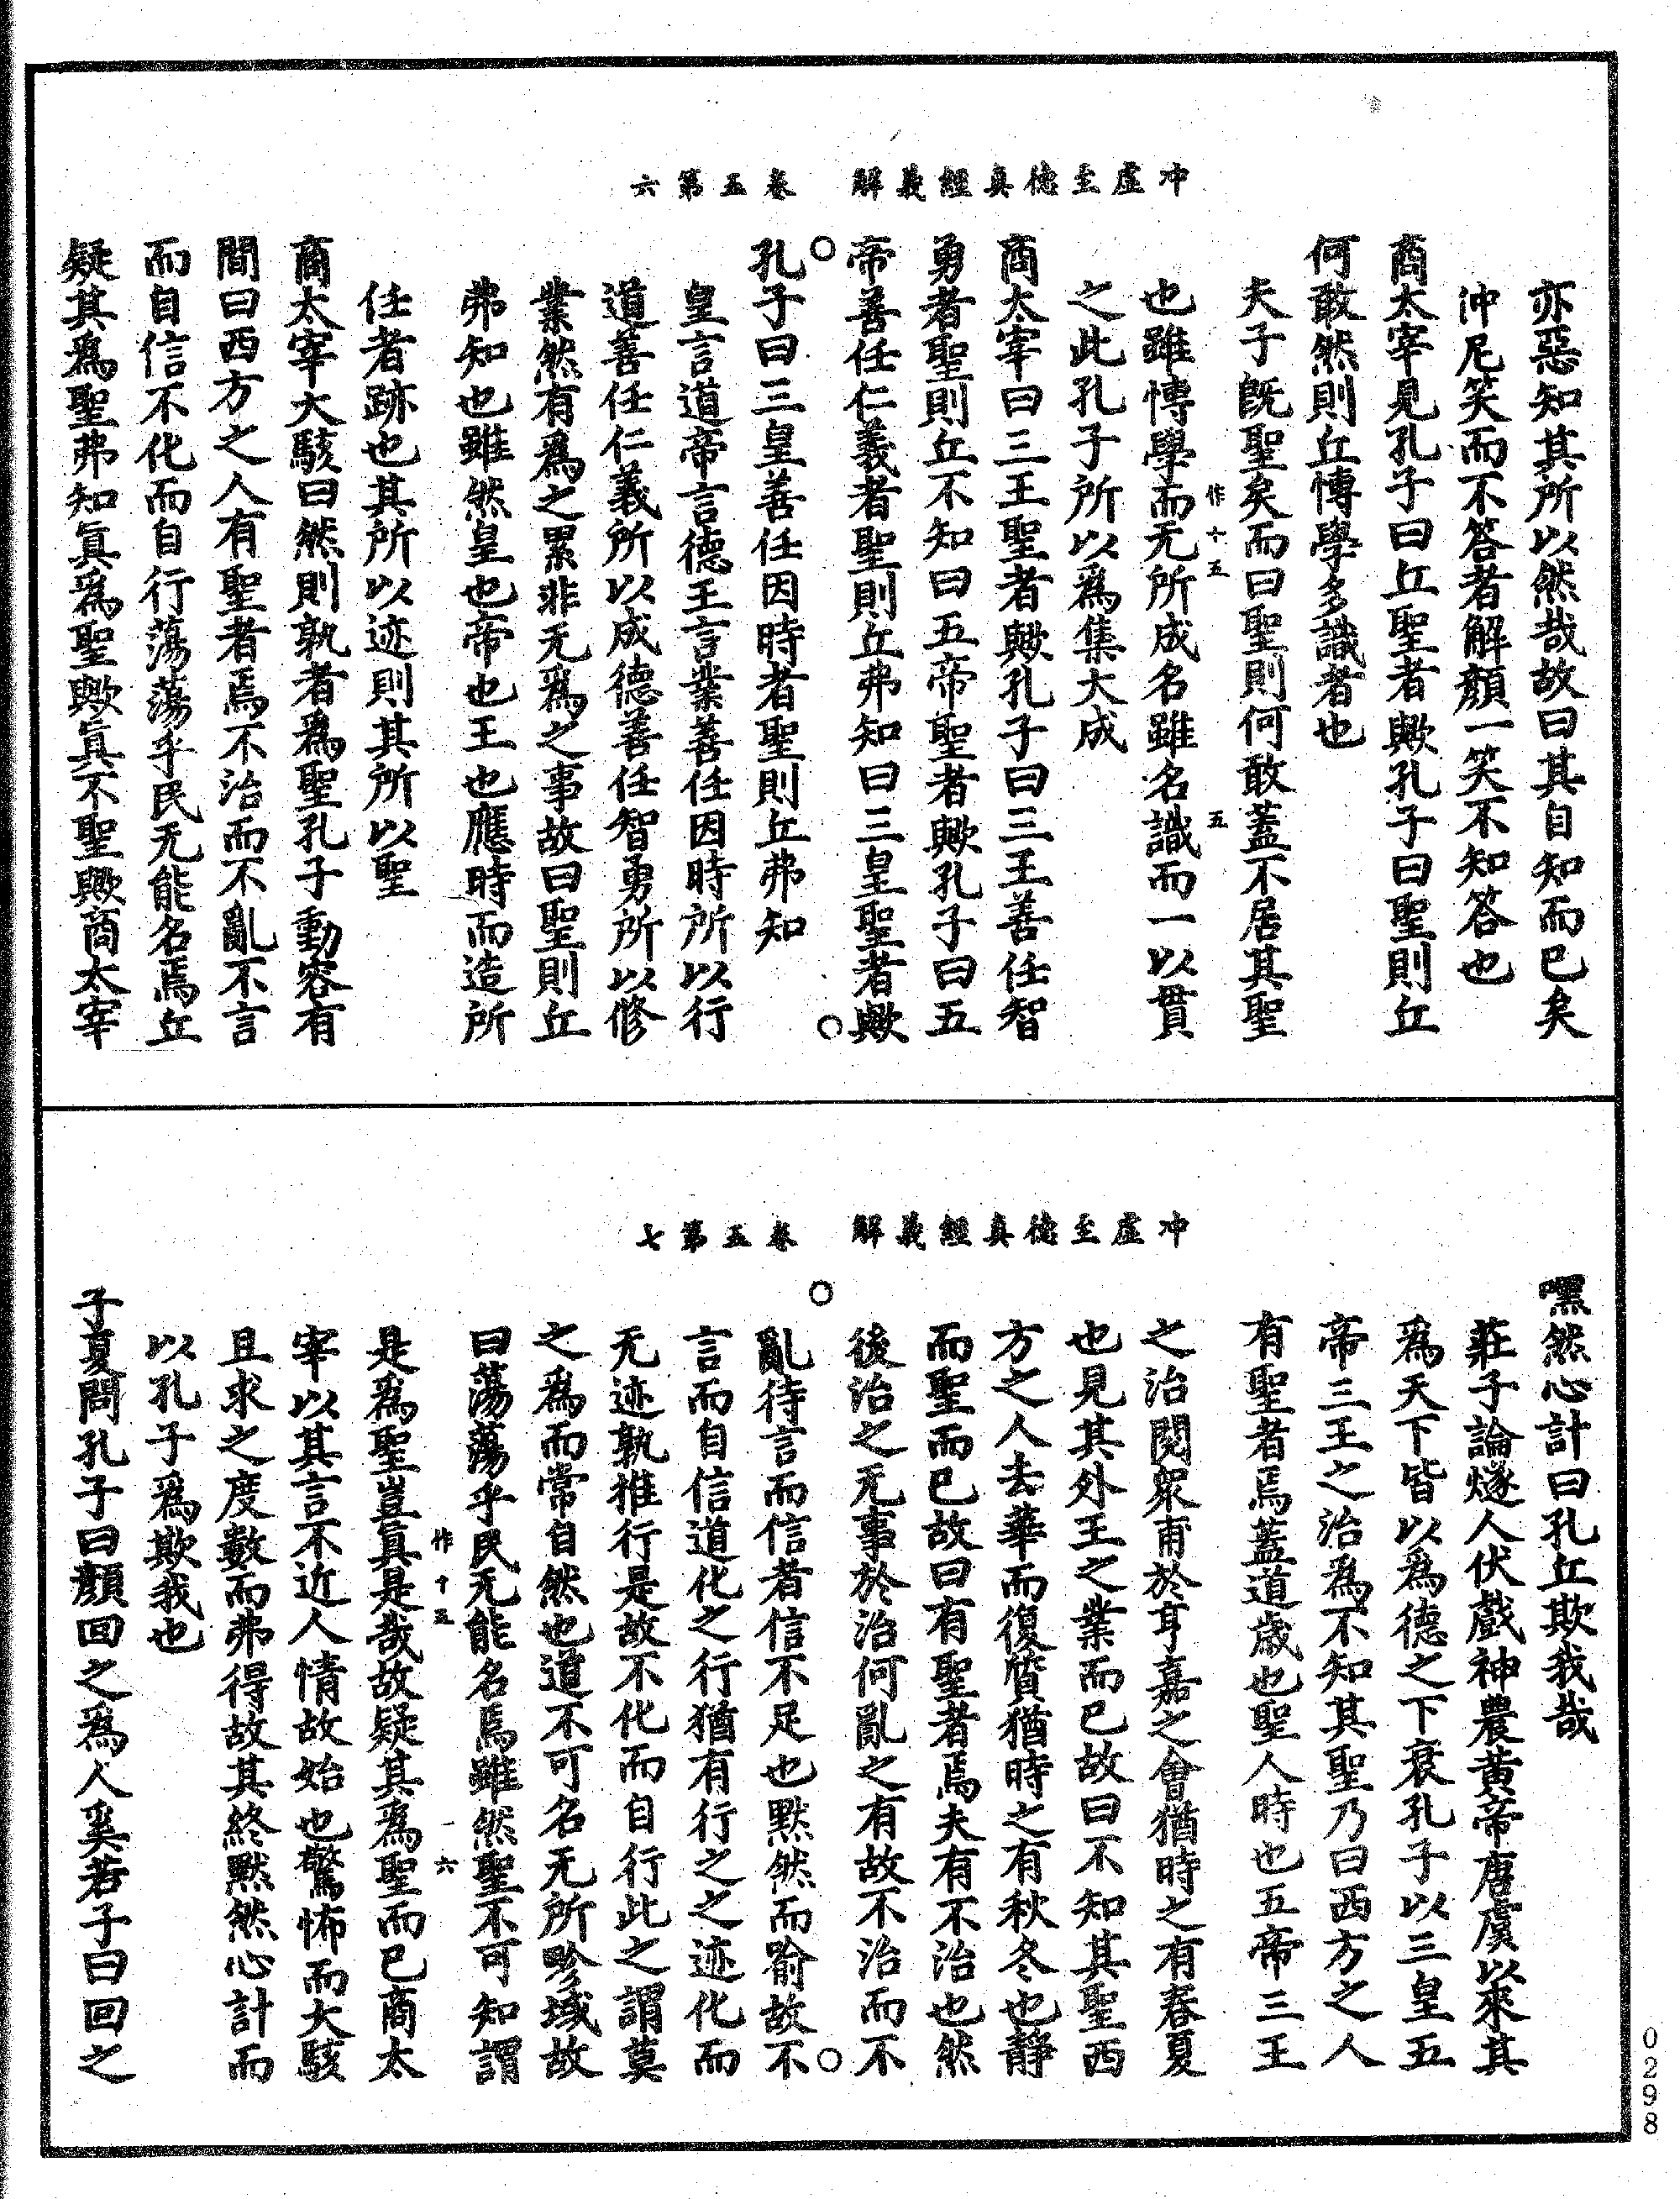 冲虛至德真經義解　卷五第六
亦惡知其所以然哉故曰其自知而已矣
沖尼笑而不答者解顏一笑不知答也
商太宰見孔子曰丘聖者歟孔子曰聖則丘
何敢然則丘博學多識者也
夫子既聖矣而曰聖則何敢蓋不居其聖
作十五　五
也雖博學而无所成名雖名識而一以貫
之此孔子所以爲集大成
商太宰曰三王聖者歟孔子曰三王善任智
勇者聖則丘不知曰五帝聖者歟孔子曰五
帝善任仁義者聖則丘弗知曰三皇聖者歟
孔子曰三皇善任因時者聖則丘弗知
皇言道帝言德王言業善任因時所以行
道善任仁義所以成德善任智勇所以修
業然有爲之累非无爲之事故曰聖則丘
弗知也雖然皇也帝也王也應時而造所
任者跡也其所以迹則其所以聖
商太宰大駭曰然則孰者爲聖孔子動容有
間曰西方之人有聖者焉不治而不亂不言
而自信不化而自行蕩蕩乎民无能名焉丘
疑其爲聖弗知眞爲聖歟眞不聖歟商太宰
冲虛至德真經義解　卷五第七
嘿然心計曰孔丘欺我哉
莊子論燧人伏戲神農黃帝唐虞以來其
爲天下皆以爲德之下衰孔子以三皇五
帝三王之治爲不知其聖乃曰西方之人
有聖者焉蓋道歲也聖人時也五帝三王
之治閱衆甫於亨嘉之會猶時之有春夏
也見其外王之業而已故曰不知其聖西
方之人去華而復質猶時之有秋冬也靜
而聖而已故曰有聖者焉夫有不治也然
後治之无事於治何亂之有故不治而不
亂待言而信者信不足也默然而喻故不
言而自信道化之行猶有行之之迹化而
无迹孰推行是故不化而自行此之謂莫
之爲而常自然也道不可名无所畛域故
曰蕩蕩乎民无能名焉雖然聖不可知謂
作十五　六
是爲聖豈真是哉故疑其爲聖而已商太
宰以其言不近人情故始也驚怖而大駭
且求之度數而弗得故其終默然心計而
以孔子爲欺我也
子夏問孔子曰顏回之爲人奚若子曰回之
0298